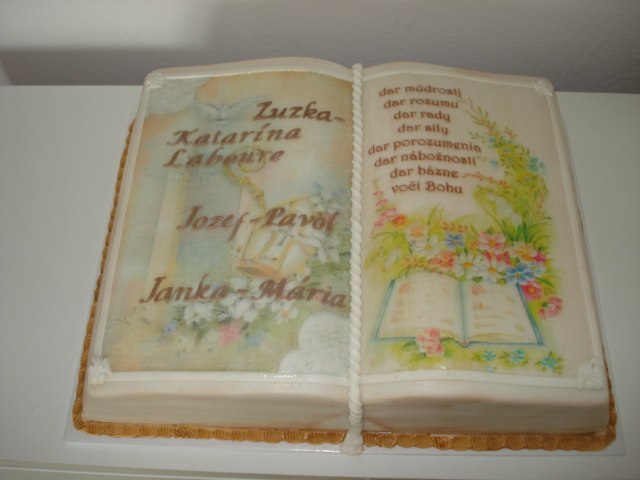 Zuzka-
Katarína
Laboure
Jozef-Pavol
Janka-Mária
dar múdrosti
dar rozumu
dar rady
dar sily
dar porozumenia
dar nábožnosti
dar bázne
voči Bohu